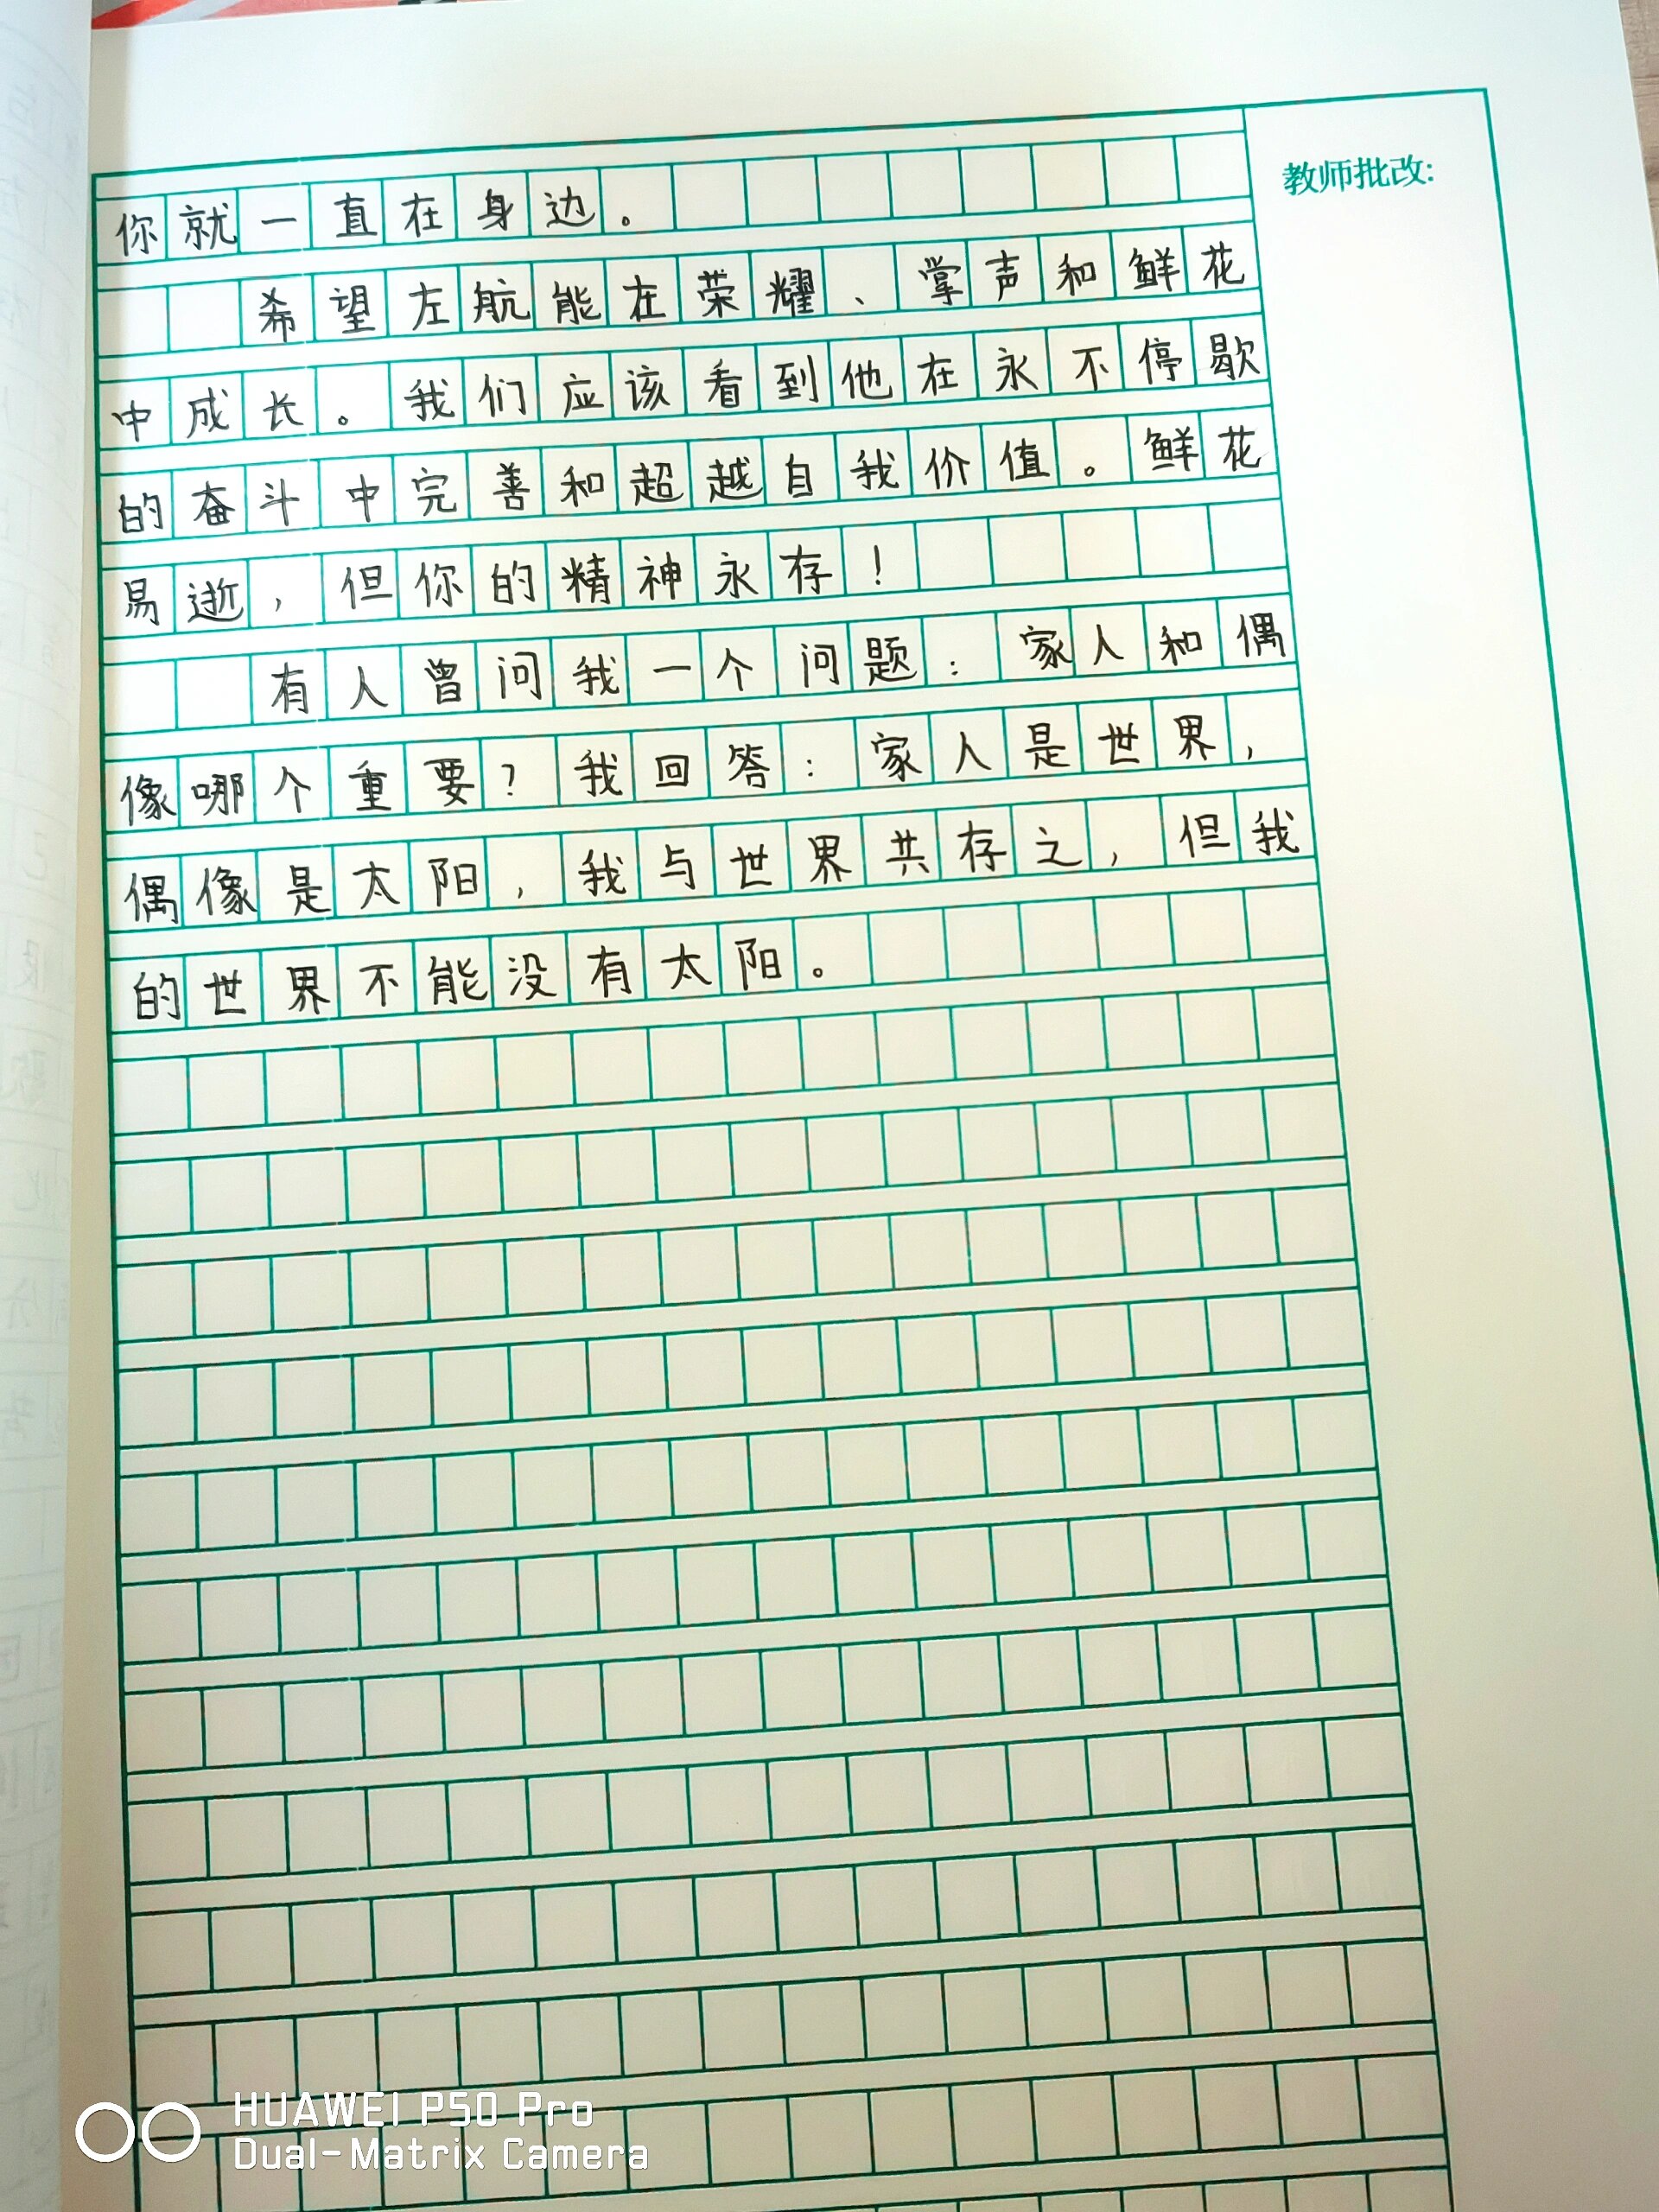 教师批改:
你就一直在身边。
希望左航能在荣耀、掌声和鲜花
中成长。我们应该看到他在永不停歇
的奋斗中完善和超越自我价值。鲜花
易逝，但你的精神永存！
有人曾问我一个问题：家人和偶
像哪个重要？我回答：家人是世界，
偶像是太阳，我与世界共存之，但我
的世界不能没有太阳。
HUAWEI P50 Pro
Dual-Matrix Camera